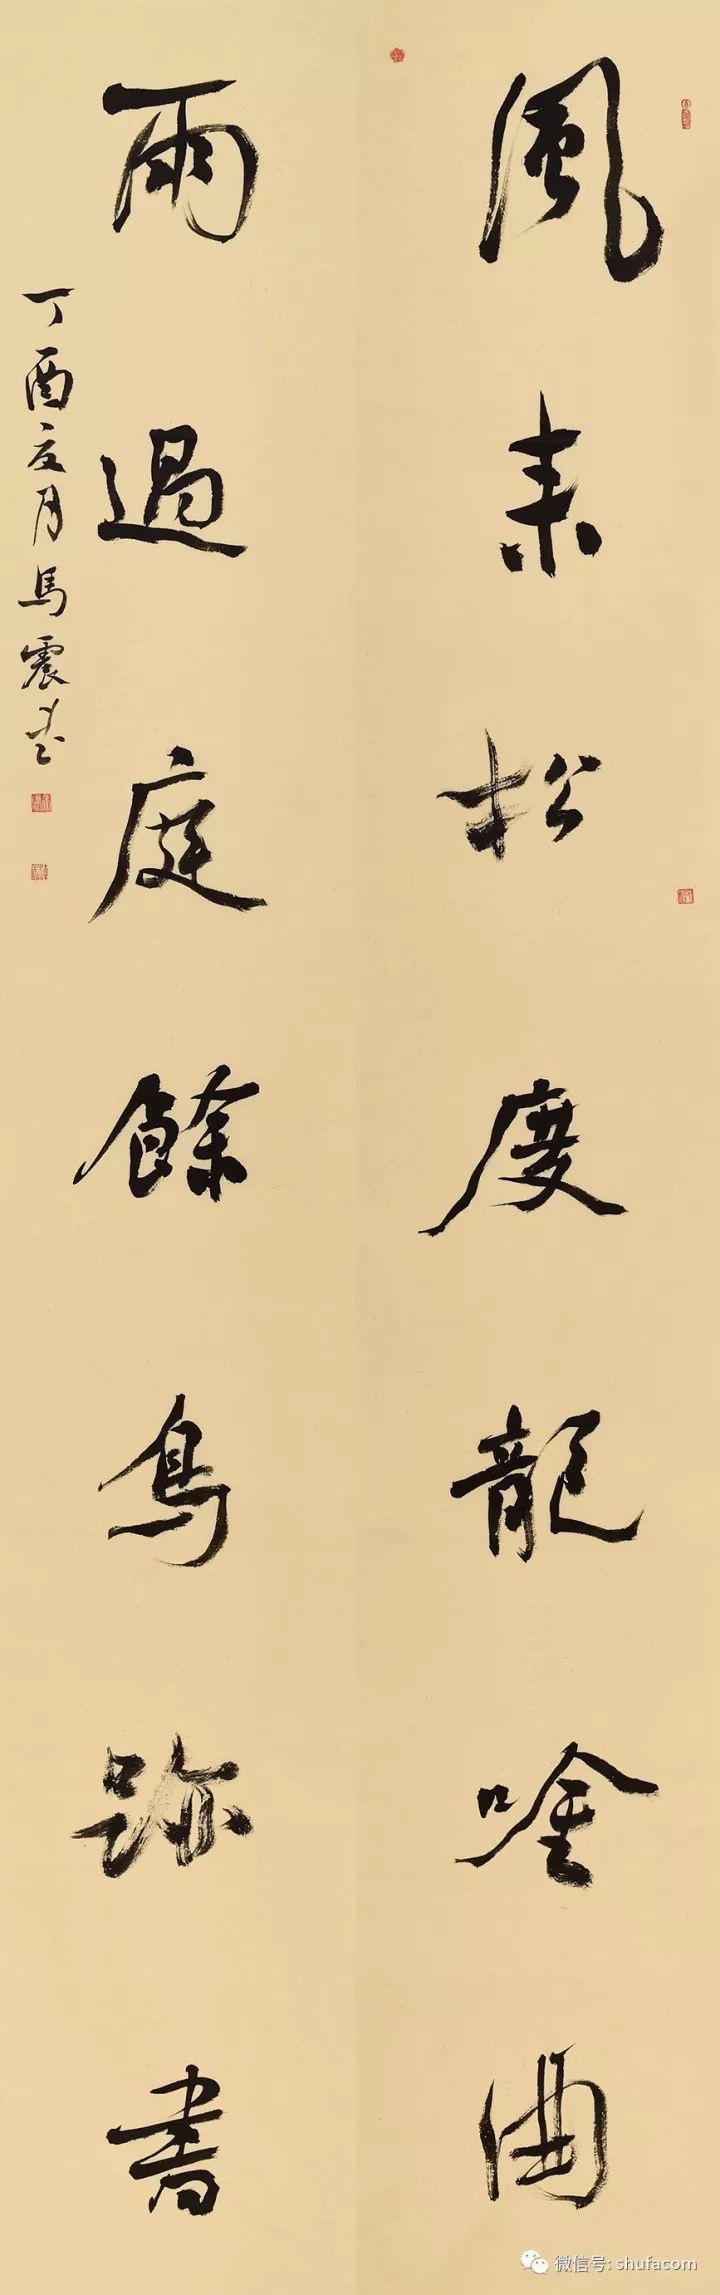 風来松度龍唫曲
雨過庭餘鳥跡書
丁酉夏月馬震
微信号: shufacom